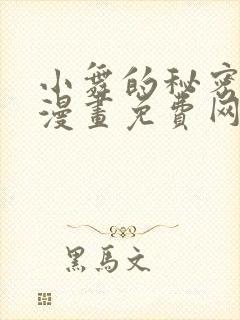 小舞的秘密
漫畫免費网
黑馬文